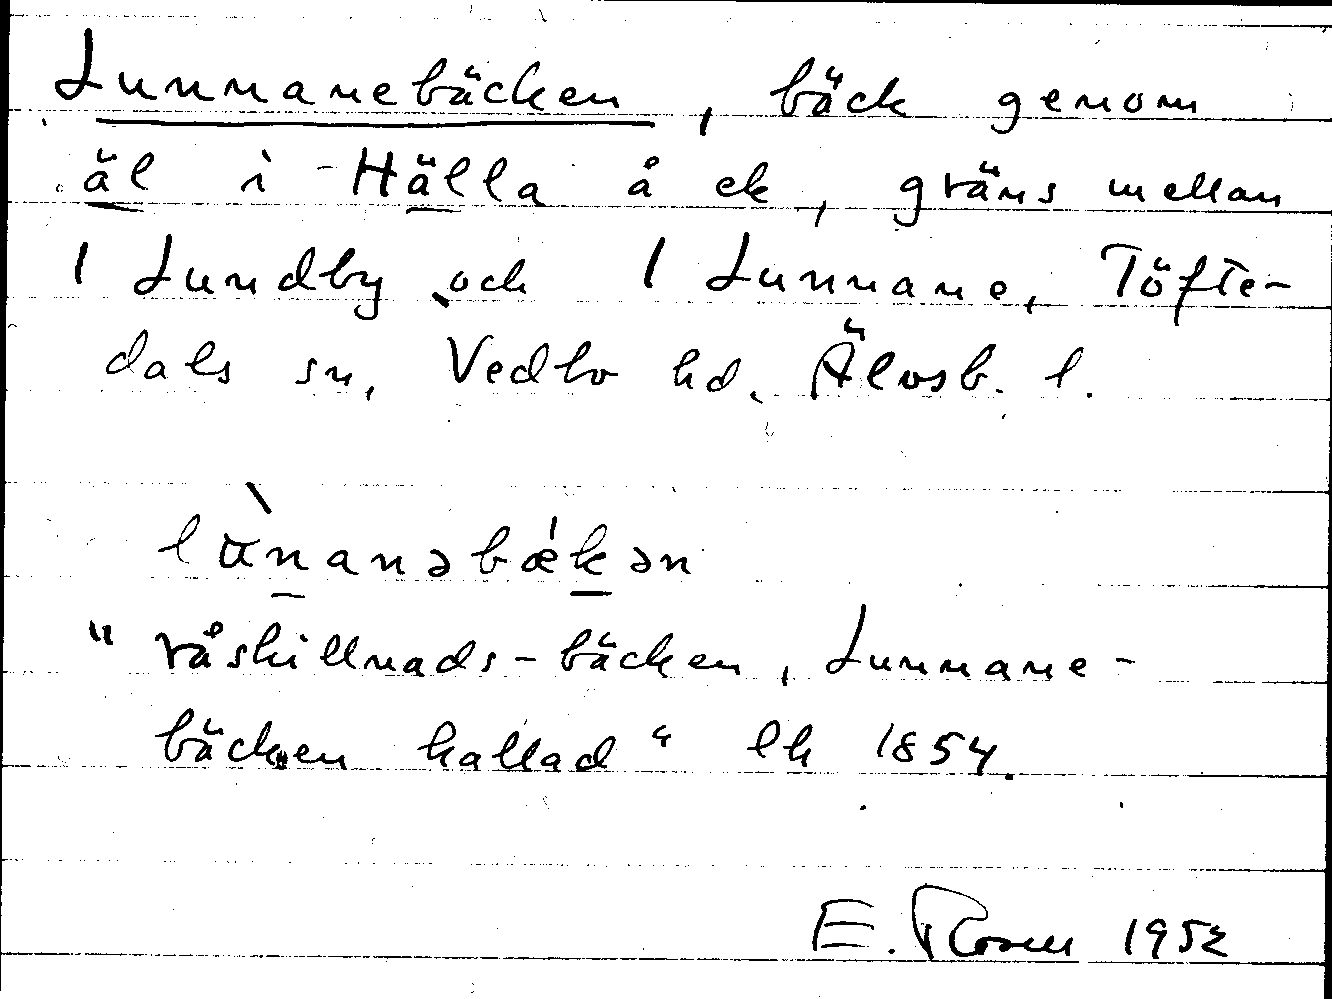 Lunnanebäcken, bäck genom
äl i Hälla å ek, gräns mellan
1 Lundby och 1 Lunnane, Töfte-
dals sn, Vedbo hd. Älvsb. l.
lùnanəbǽkən
" råskillnads-bäcken, Lunnane-
bäcken kallad " lh 1854.
E. 1952